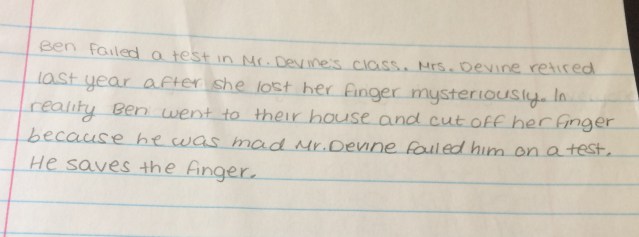 Ben failed a test in Mr. Devine's class. Mrs. Devine retired
last year after she lost her finger mysteriously. In
reality Ben went to their house and cut off her finger
because he was mad Mr. Devine failed him on a test.
He saves the finger.